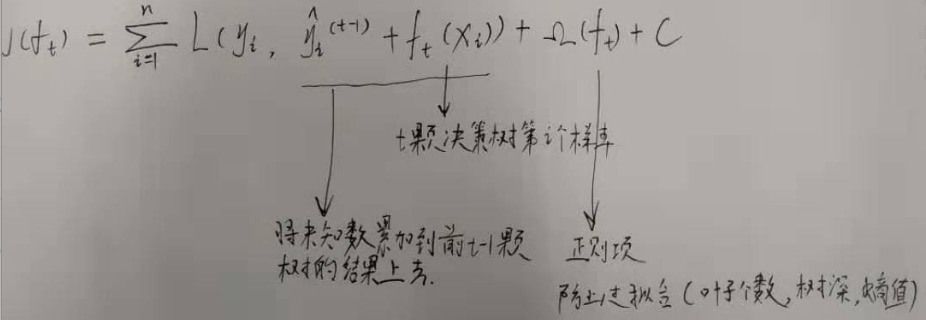 J(f_t) = \sum_{i=1}^{n} L(y_i, \hat{y}_i^{(t-1)} + f_t(x_i)) + Ω(f_t) + C
t颗决策树第i个样本
将未知数累加到前t-1颗
树的结果上去.
正则项
防止过拟合(叶子个数,树深,熵值)